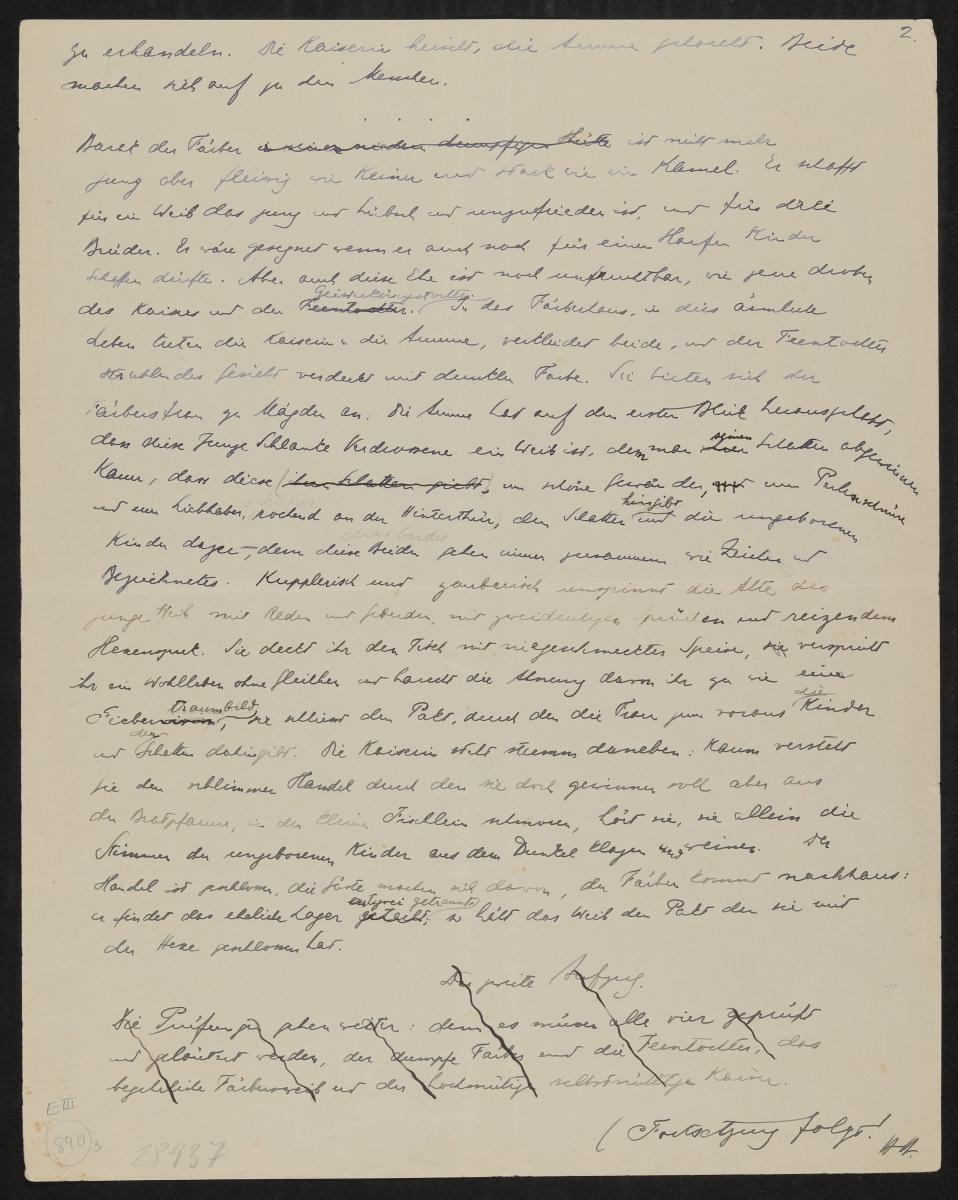 2.
zu erhandeln. Die Kaiserin heischt, die Amme gehorcht. Beide
machen sich auf zu den Menschen.
Barak der Färber in seiner niedern dumpfigen Hütte ist nicht mehr
jung aber fleissig wie Keiner und stark wie ein Kamel. Er schafft
für ein Weib das jung und hübsch und unzufrieden ist, und für drei
Brüder. Er wäre gesegnet wenn er auch noch für einen Haufen Kinder
schaffen dürfte. Aber auch diese Ehe ist noch unfruchtbar, wie jene droben
Geisterkönigstochter
des Kaisers und der Feentochter. In das Färberhaus, in dies ärmliche
Leben treten die Kaiserin u die Amme, verkleidet beide, und der Feentochter
strahlendes Gesicht verdeckt mit dunkler Farbe. Sie bieten sich der
Färbersfrau zu Mägden an. Die Amme hat auf den ersten Blick herausgehabt,
seinen
dass diese Junge Schlanke Verdrossene ein Weib ist, dem man Schatten abgewinnen
kann, dass diese ihren Schatten giebt, um schöne Gewänder, um Perlenschnüre
hingibt
und einen Liebhaber, pochend an der Hinterthür, den Schatten und die ungeborenen
denn beides
Kinder dazu –, denn diese Beiden gehen immer zusammen wie Zeichen und
Bezeichnetes. Kupplerisch und zauberisch umspinnt die Alte das
junge Weib mit Reden und Geberden, mit zweideutigen Sprüchen und reizendem
Hexenspuk. Sie deckt ihr den Tisch mit niegeschmeckter Speise, sie verspricht
ihr ein Wohlleben ohne gleichen und haucht die Ahnung davon ihr zu wie eine
traumbild, die
Fiebervision, sie schliesst den Pakt, durch den die Frau zum voraus Kinder
den
und Schatten dahingibt. Die Kaiserin steht stumm daneben: kaum versteht
sie den schlimmen Handel durch den sie doch gewinnen soll aber aus
der Bratpfanne, in der kleine Fischlein schmoren, hört sie, sie allein die
Stimmen der ungeborenen Kinder aus dem Dunkel klagen und weinen. Der
Handel ist geschlossen, die Gäste machen sich davon, der Färber kommt nachhaus:
entzwei getrennt
er findet das eheliche Lager geteilt; so hält das Weib den Pakt den sie mit
der Hexe geschlossen hat.
Der zweite Aufzug.
Die Prüfungen gehen weiter: denn es müssen alle vier geprüft
und geläutert werden, der dumpfe Färber und die Feentochter, das
begehrliche Färbersweib und der hochmütige selbstsüchtige Kaiser.
(Fortsetzung folgt!
HH.
E III
89a 3
28937